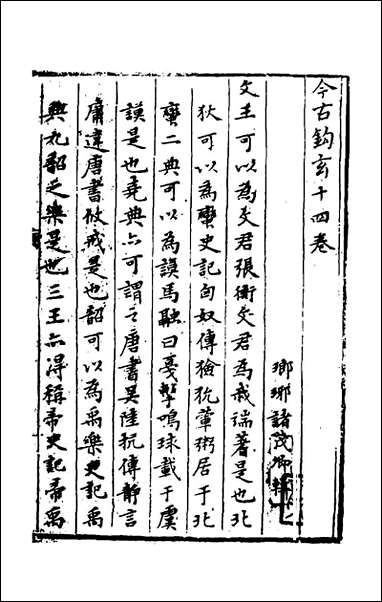 今古鈎玄十四卷
瑯琊諸茂卿輯
文王可以為文君張衡文君為我端蓍是也北
狄可以為蠻史記匈奴傳獫狁葷粥居于北
蠻二典可以為謨馬融曰戛擊鳴球載于虞
謨是也堯典亦可謂之唐書吳陸抗傳靜言
庸違唐書攸戒是也韶可以為禹樂史記禹
興九韶之樂是也三王亦得稱帝史記帝禹